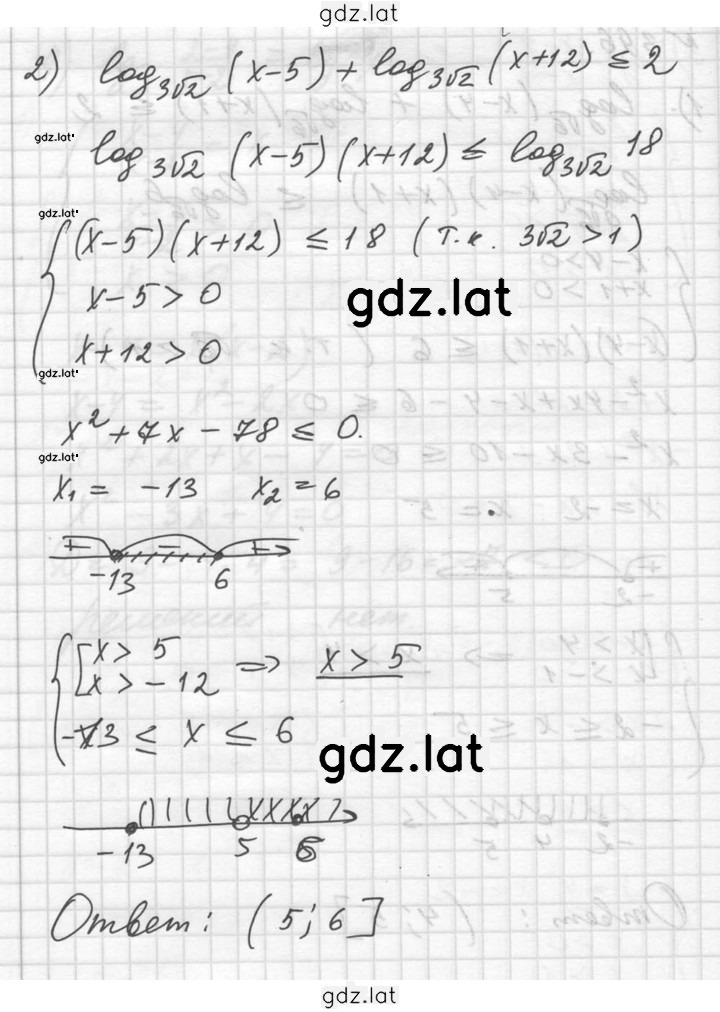 gdz.lat
2) log_{3√2} (x-5) + log_{3√2} (x+12) ≤ 2
gdz.lat
log_{3√2} (x-5)(x+12) ≤ log_{3√2} 18
gdz.lat
{ (x-5)(x+12) ≤ 18 (т.к. 3√2 > 1)
x-5 > 0
gdz.lat
x+12 > 0
gdz.lat
x² + 7x - 78 ≤ 0.
gdz.lat
x₁ = -13 x₂ = 6
+ - +
-13 6
{ [ x > 5
x > -12 => x > 5
-13 ≤ x ≤ 6
gdz.lat
-13 5 6
Ответ: (5; 6]
gdz.lat